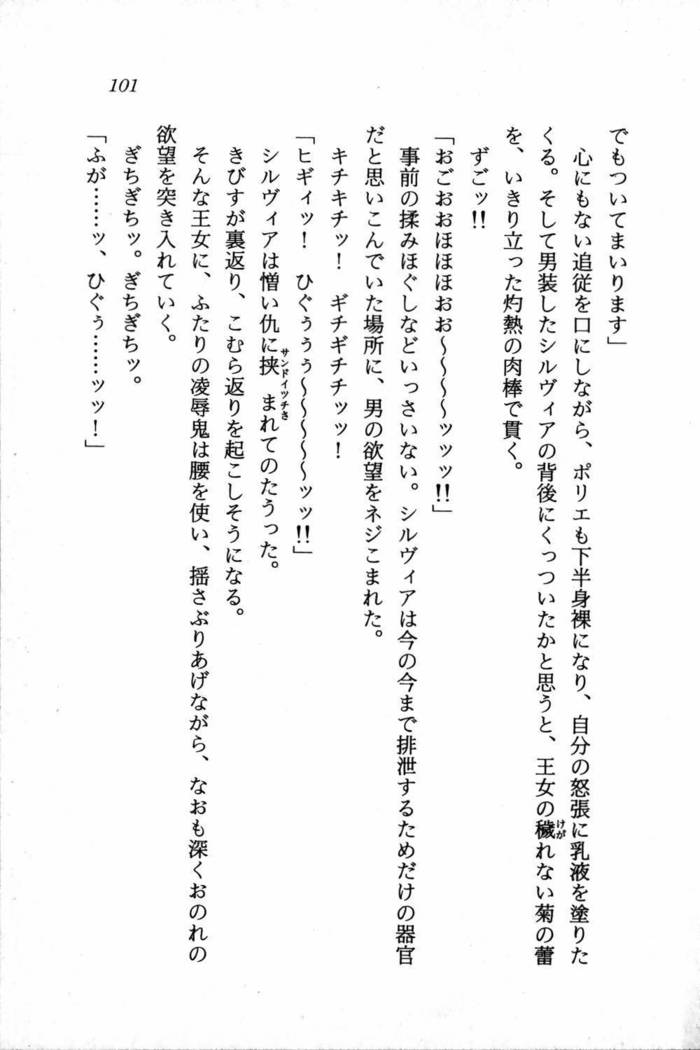 101
でもついてまいります」
心にもない追従を口にしながら、ポリエも下半身裸になり、自分の怒張に乳液を塗りた
くる。そして男装したシルヴィアの背後にくっついたかと思うと、王女の穢れない菊の蕾
を、いきり立った灼熱の肉棒で貫く。
ずごッ!!
「おごおおほほほおお～～～～ッッッ!!」
事前の揉みほぐしなどいっさいない。シルヴィアは今の今まで排泄するためだけの器官
だと思いこんでいた場所に、男の欲望をネジこまれた。
キチキチッ！　ギチギチチッッ！
「ヒギィッ！　ひぐぅぅぅ～～～～～ッッ!!」
シルヴィアは憎い仇に挟まれてのたうった。
きびすが裏返り、こむら返りを起こしそうになる。
そんな王女に、ふたりの凌辱鬼は腰を使い、揺さぶりあげながら、なおも深くおのれの
欲望を突き入れていく。
ぎちぎちッ。ぎちぎちッ。
「ふが……ッ、ひぐぅ……ッッ！」